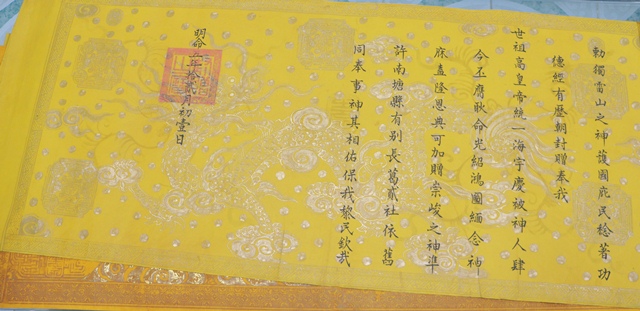 勅獨雷山之神護國庇民稔著功
德經有歷朝封贈奉我
世祖高皇帝統一海宇慶被神人肆
今丕膺耿命光紹鴻圖緬念神
庥盍隆恩典可加贈崇峻之神準
許南塘縣有别長葛貳社依舊
同奉事神其相佑保我黎民欽哉
明命五年拾貳月初壹日